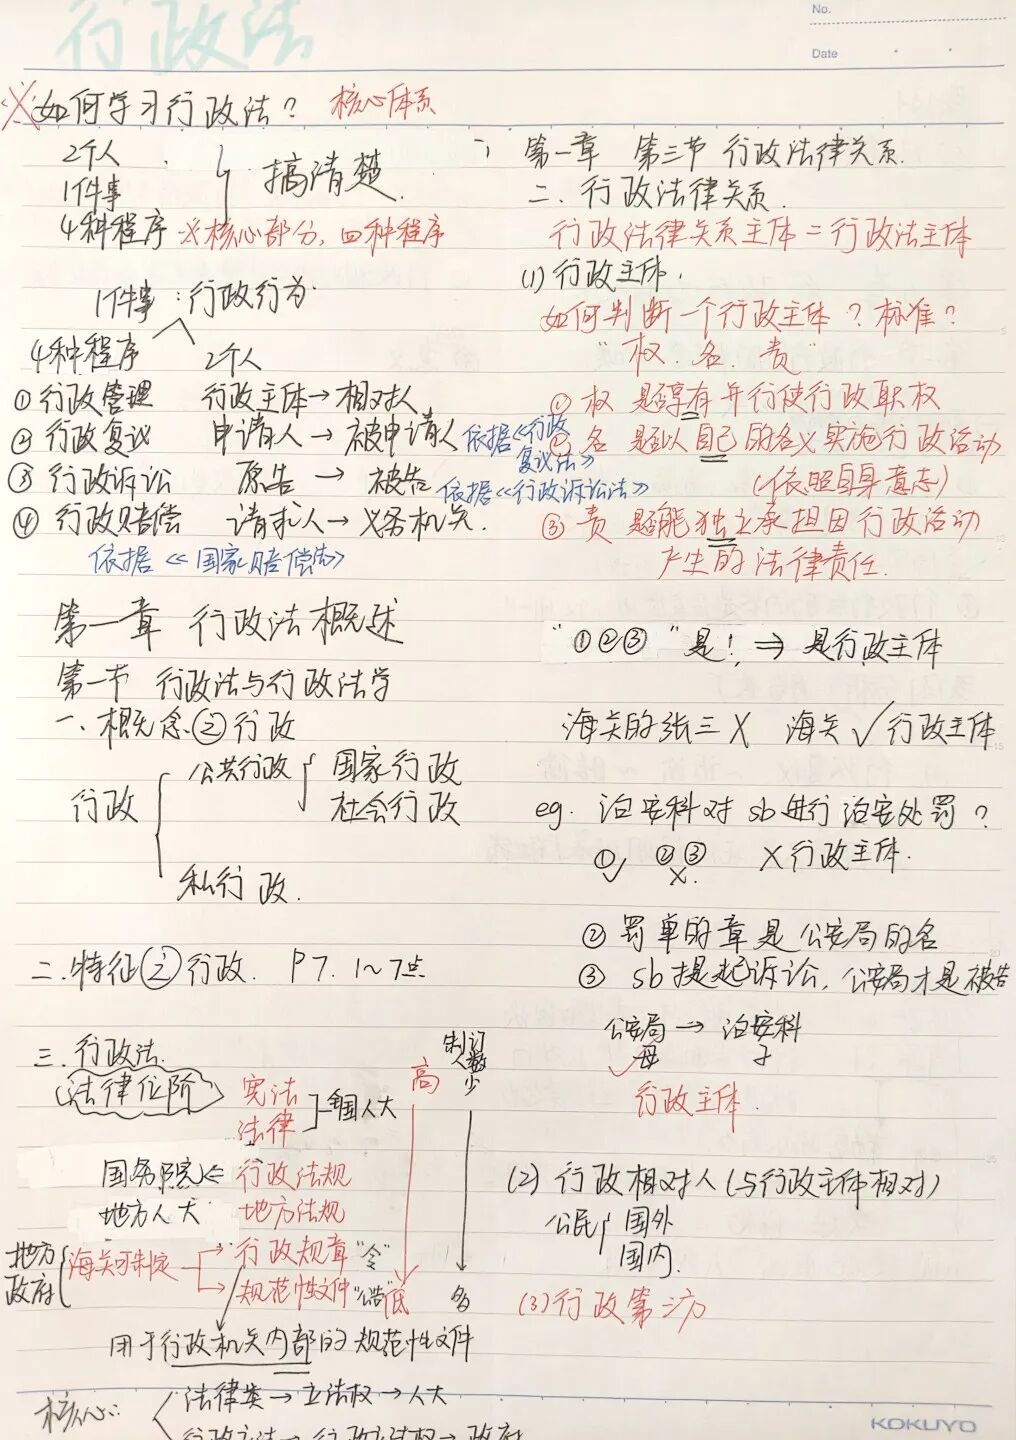 行政法
No.
Date
※如何学习行政法? 核心体系
2个人
1件事
4种程序 搞清楚.
※核心部分,四种程序
1件事:行政行为.
4种程序 2个人
①行政管理 行政主体→相对人
②行政复议 申请人→被申请人 依据《行政复议法》
③行政诉讼 原告→被告 依据《行政诉讼法》
④行政赔偿 请求人→义务机关.
依据《国家赔偿法》
第一章 行政法概述
第一节 行政法与行政法学
一.概念②行政
行政
公共行政 国家行政
社会行政
私行政.
二.特征②行政. P7. 1~7点
三.行政法.
法律位阶
宪法
法律 全国人大
国务院← 行政法规
地方人大 地方法规
地方政府 海关可制定→ 行政规章"令"
规范性文件"公告"
高
低
制订人数少
多
用于行政机关内部的规范性文件
核心:
法律类→立法权→人大
第一章 第三节 行政法律关系.
二.行政法律关系.
行政法律关系主体=行政法主体
(1)行政主体.
如何判断一个行政主体?标准?
"权.名.责"
①权 是否享有并行使行政职权
②名 是否以自己的名义实施行政活动
(依照自身意志)
③责 是否能独立承担因行政活动
产生的法律责任.
"①②③"是!⇒是行政主体
海关的张三X 海关√行政主体
eg. 治安科对sb进行治安处罚?
①√ ②③X. X行政主体.
②罚单的章是公安局的名
③sb提起诉讼,公安局才是被告
公安局→治安科
√母 子
行政主体.
(2)行政相对人(与行政主体相对)
公民 国外
国内.
(3)行政第三方
KOKUYO